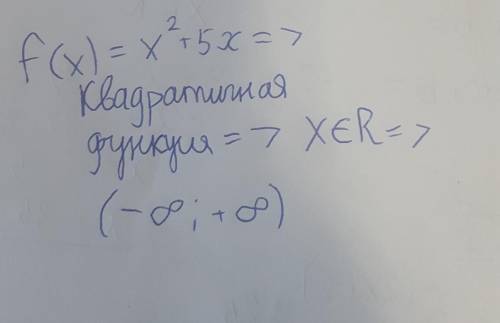 f(x) = x²+5x =>
Квадратичная
функция => XєR =>
(-∞; +∞)